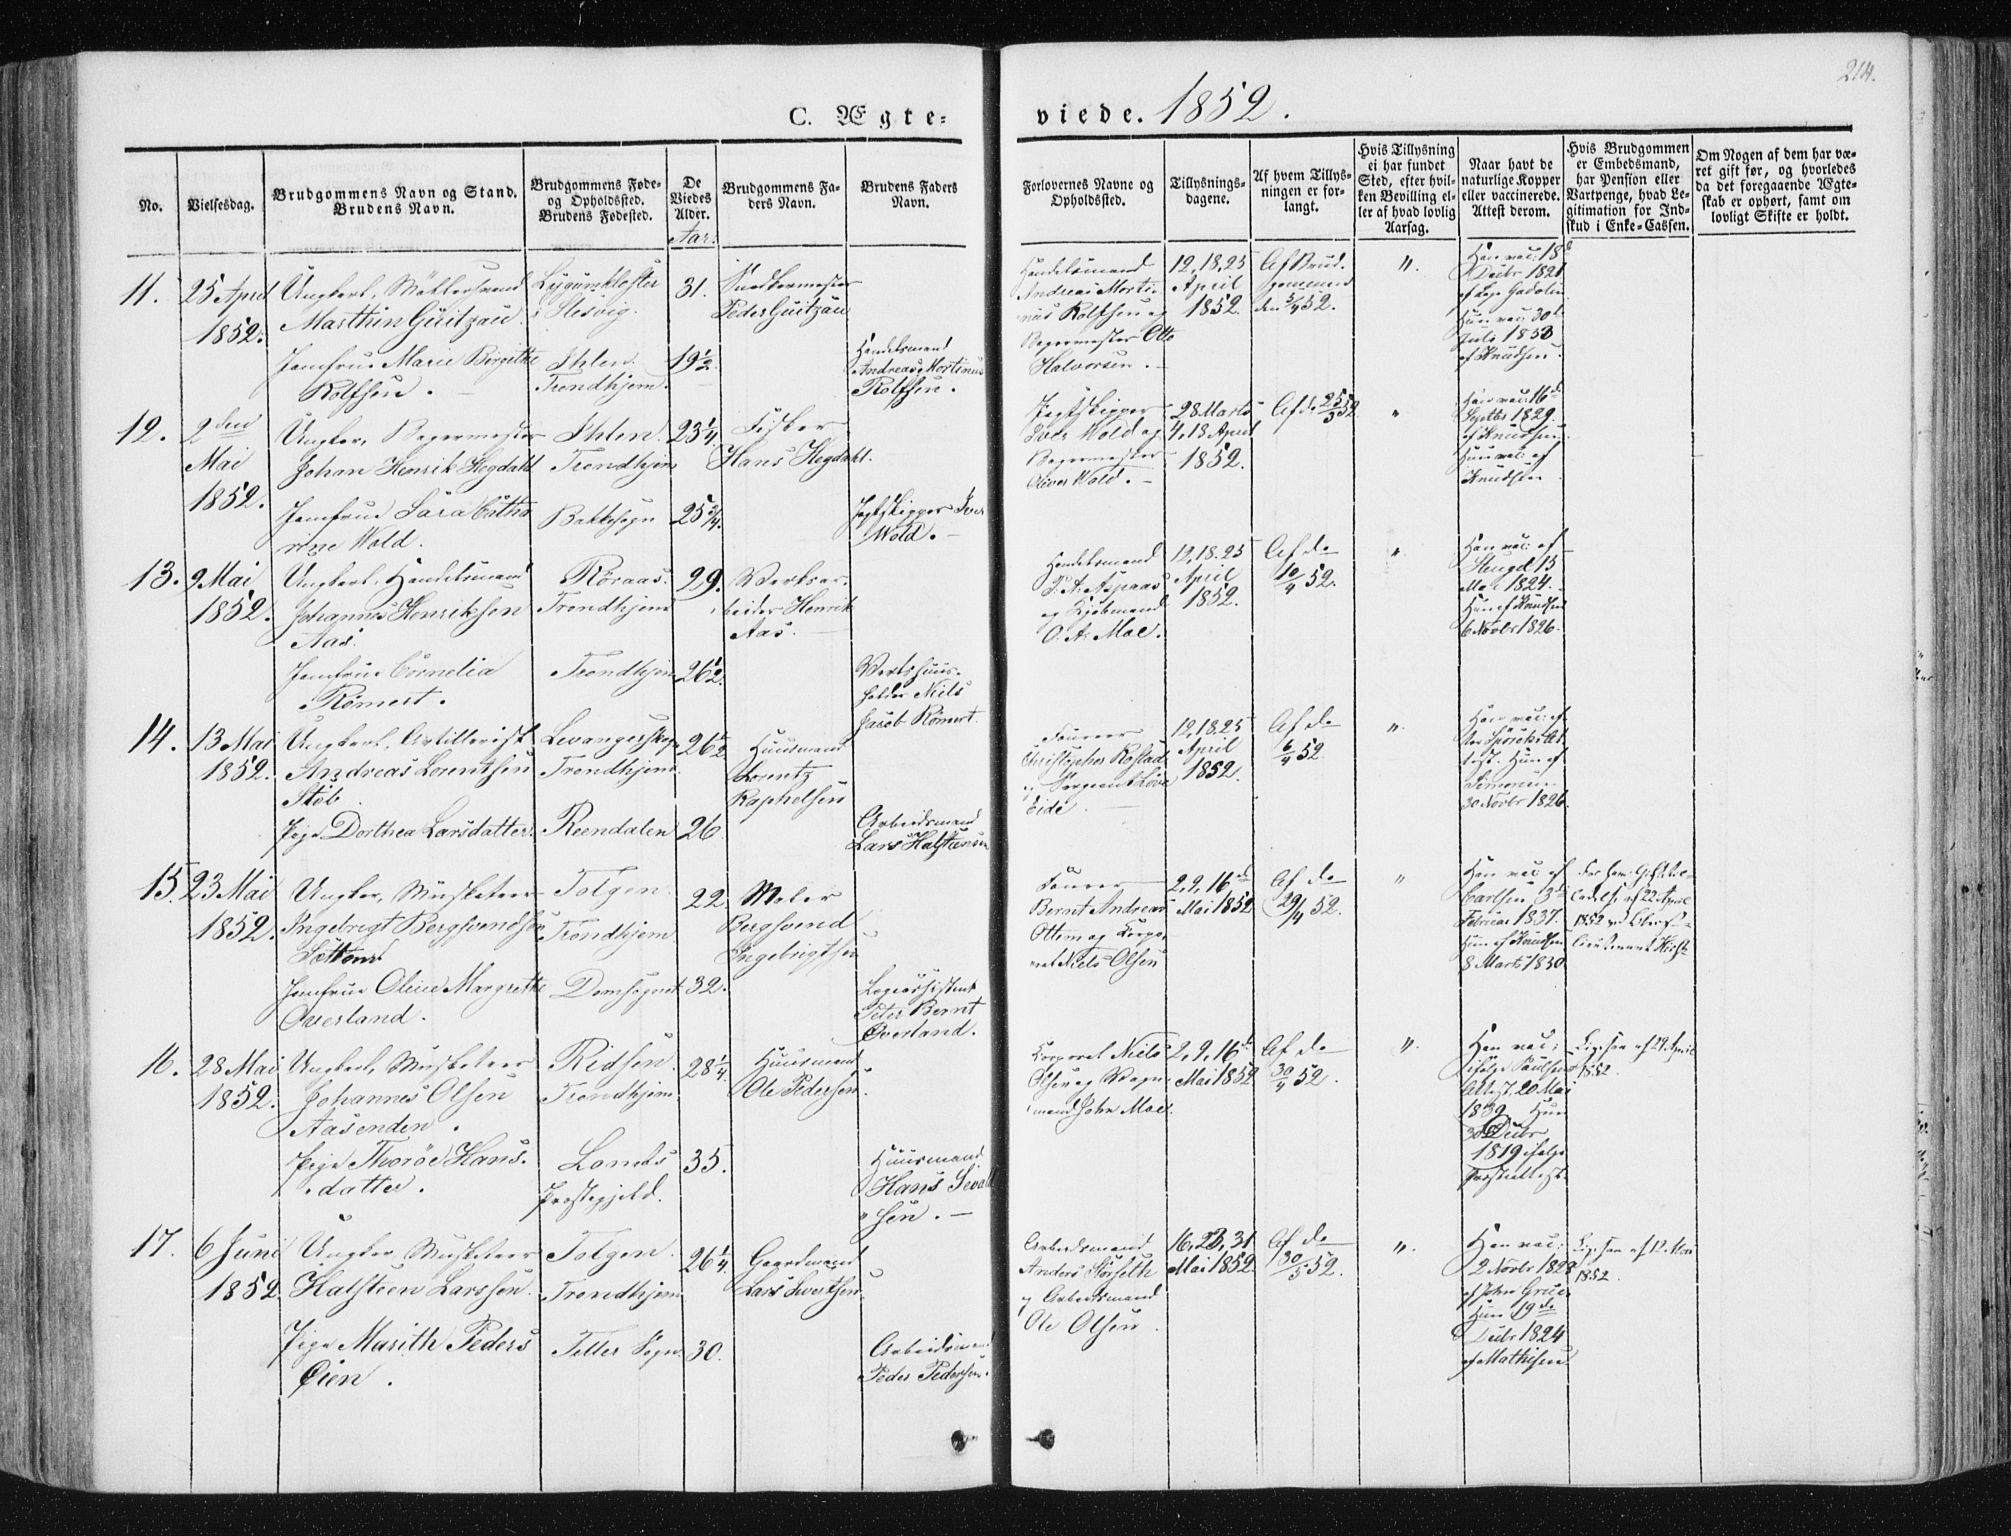 214.
C. Ægte-
viede. 1852.
No.
Vielsesdag.
Brudgommens Navn og Stand.
Brudens Navn.
Brudgommens Føde-
og Opholdssted.
Brudens Fødested.
De
Viedes
Alder.
Aar.
Brudgommens Fa-
ders Navn.
Brudens Faders
Navn.
Forlovernes Navne og
Opholdssted.
Tillysnings-
dagene.
Af hvem Tillys-
ningen er for-
langt.
Hvis Tillysning
ei har fundet
Sted, efter hvil-
ken Bevilling el-
ler af hvad lovlig
Aarsag.
Naar havt de
naturlige Kopper
eller vaccinerede.
Attest derom.
Hvis Brudgommen
er Embedsmand,
har Pension eller
Vartpenge, hvad Le-
gitimation for Ind-
skud i Enke-Cassen.
Om Nogen af dem har væ-
ret gift før, og hvorledes
da det foregaaende Ægte-
skab er ophørt, samt om
lovligt Skifte er holdt.
11.
25 April
1852.
Ungkarl,
Marthin Güitzau
Jomfrue Marie Birgitte
Rolfsen.
Lygumkloster
i Slesvig.
Ihlen
Trondhjem.
31.
19½
Snedkermester
Peder Guitzau
Handelsmand
Andreas Mortinus
Rolfsen.
Handelsmand
Andreas Morti-
nus Rolfsen og
Bagermester Otto
Halvorsen.
12, 18, 25
April
1852.
Af Brud-
gommen
den 5/4 52.
"
Han vac: 18d
Decbr 1821
Hun vac: 30d
Juli 1833
af Knudsen.
12.
2den
Mai
1852.
Ungkar, Bagermester
Johan Henrik Hegdahl
Jomfrue Sara Catha
rine Wold.
Ihlen
Trondhjem
Bakkesogn
23¼
25¾
Fisker
Hans Hegdahl.
Jagtskipper Iver
Wold.
Jagtskipper
Iver Wold og
Bagermester
Oliver Wold.
28 Marts
4, 18 April
1852.
Af do 25/3 52
"
Han vac: 16d
Septbr 1829
af Knudsen
Hun vac: af
Knudsen
13.
9 Mai
1852.
Ungkarl, Handelsmand
Johannes Henriksen
Aas.
Jomfrue Cornelia
Römert.
Röraas.
Trondhjem
Trondhjem
29.
26½
Verksar-
beider Henrik
Aas.
Vertshuus-
holder Niels
Jacob Römert.
Handelsmand
P. A. Aspaas
og Kjøbmand
O. A. Moe.
12, 18, 25
April
1852.
Af do
10/4 52.
"
Han vac: af
Stengel 15
Mai 1824.
Hun af Knudsen
6 Novbr 1826.
14.
13 Mai
1852.
Ungkarl, Artillerist
Andreas Lorentsen
Stöb
Pige Dorthea Larsdatter.
Levangerskog.
Trondhjem.
Reendalen
26½
26
Huusmand
Lorentz
Raphelsen
Arbeidsmand
Lars Halsteensen
Fourer
Christopher Rostad
og Sergeant
Eide.
12, 18, 25
April
1852.
Af do
6/4 52.
"
Han vac: af
Hun af
Simonsen
30 Novbr 1826.
15.
23 Mai
1852.
Ungkar, Musketeer
Ingebrigt Bergsvendsen
Jomfrue Oline Margrethe
Overland.
Tolgen
Trondhjem
Domsognet
22
32.
Maler
Bergsvend
Ingebrigtsen
Logiassistent
Peter Bernt
Overland.
Fourer
Bernt Andreas
Ottem og Corpo-
ral Niels Olsen
2, 9, 16d
Mai 1852
Af do
29/4 52.
"
Han vac af
Carlsen 3d
Februar 1837.
Hun af Knudsen
8 Marts 1830.
22 April
1852
16.
28 Mai
1852.
Ungkarl, Musketeer
Johannes Olsen
Aasenden.
Pige Thoröe Hans-
datter.
Ridsen.
Trondhjem
Lomes
Prestegjeld.
28¼
35.
Huusmand
Ole Pedersen.
Huusmand
Hans Sivald
sen.
Corporal Niels
Olsen og Vogn-
mand John Moe.
2, 9, 16d
Mai 1852
Af do
30/4 52.
"
Han vac:
ifølge Paulsens
Attest, 20 Mai
1839 Hun
30 Decbr
1819 ifølge
Presteattest.
Ligesaa af 29 April
1852.
17.
6 Juni
1852.
Ungkar, Musketeer
Halsteen Larssen.
Pige Marith Peders
Öien.
Tolgen
Trondhjem
Teller Sogn.
26¼
30.
Gaardmand
Lars Ivertsen.
Arbeidsmand
Peder Pedersen.
Arbeidsmand
Anders Störseth
og Arbeidsmand
Ole Olsen.
16, 23, 31
Mai 1852.
Af do
30/5 52.
"
Han vac:
2 Novbr 1828
af John Grue.
Hun 19de
Decbr 1824
af Mathisen
Ligesaa af 12 Mai
1852.